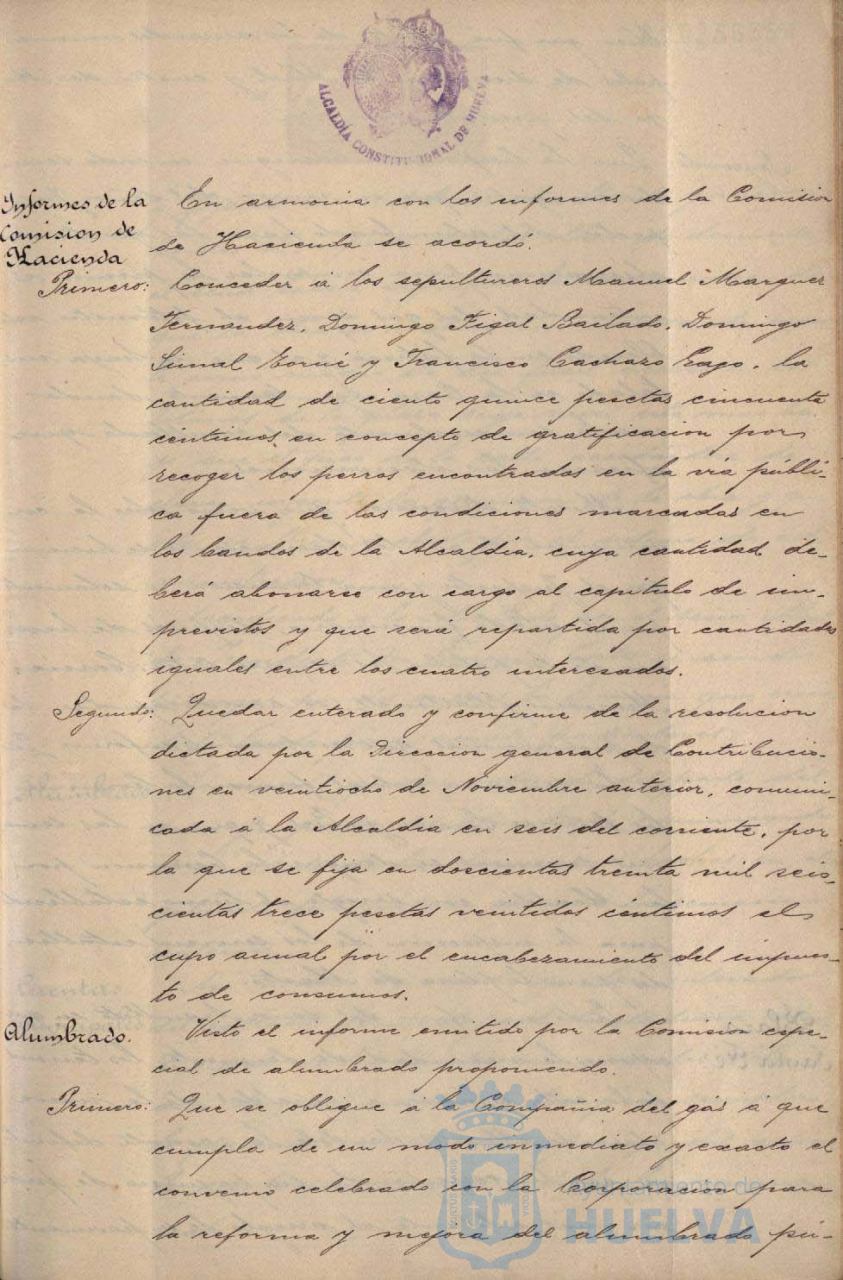 ALCALDÍA CONSTITUCIONAL DE HUELVA
Informes de la
Comision de
Hacienda
En armonia con los informes de la Comision
de Hacienda se acordó.
Primero: Conceder á los sepultureros Manuel Marquez
Fernandez, Domingo Figal Bailado, Domingo
y Francisco Cachazo Gago, la
cantidad de ciento quince pesetas cincuenta
céntimos en concepto de gratificacion por
recoger los perros encontrados en la via públi-
ca fuera de las condiciones marcadas en
los bandos de la Alcaldía, cuya cantidad de-
berá abonarse con cargo al capitulo de im-
previstos y que será repartida por cantidades
iguales entre los cuatro interesados.
Segundo: Quedar enterado y conforme de la resolucion
dictada por la Direccion general de Contribucio-
nes en veintiocho de Noviembre anterior, comuni-
cada á la Alcaldia en seis del corriente, por
la que se fija en doscientas treinta mil seis-
cientas trece pesetas veintidos céntimos el
cupo annal por el encabezamiento del impues-
to de consumos.
Alumbrado.
Visto el informe emitido por la Comision espe-
cial de alumbrado proponiendo.
Primero: Que se obligue á la Compañia del gás á que
cumpla de un modo inmediato y exacto el
convenio celebrado con la Corporacion para
la reforma y mejora del alumbrado pú-
Ayuntamiento de
HUELVA